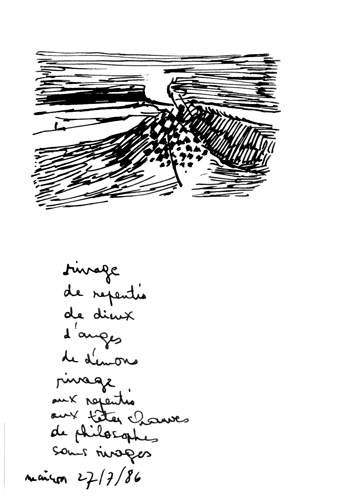 rivage
de repentis
de dieux
d'anges
de démons
rivage
aux repentis
aux têtes chauves
de philosophes
sans rivages
maison 27/7/86